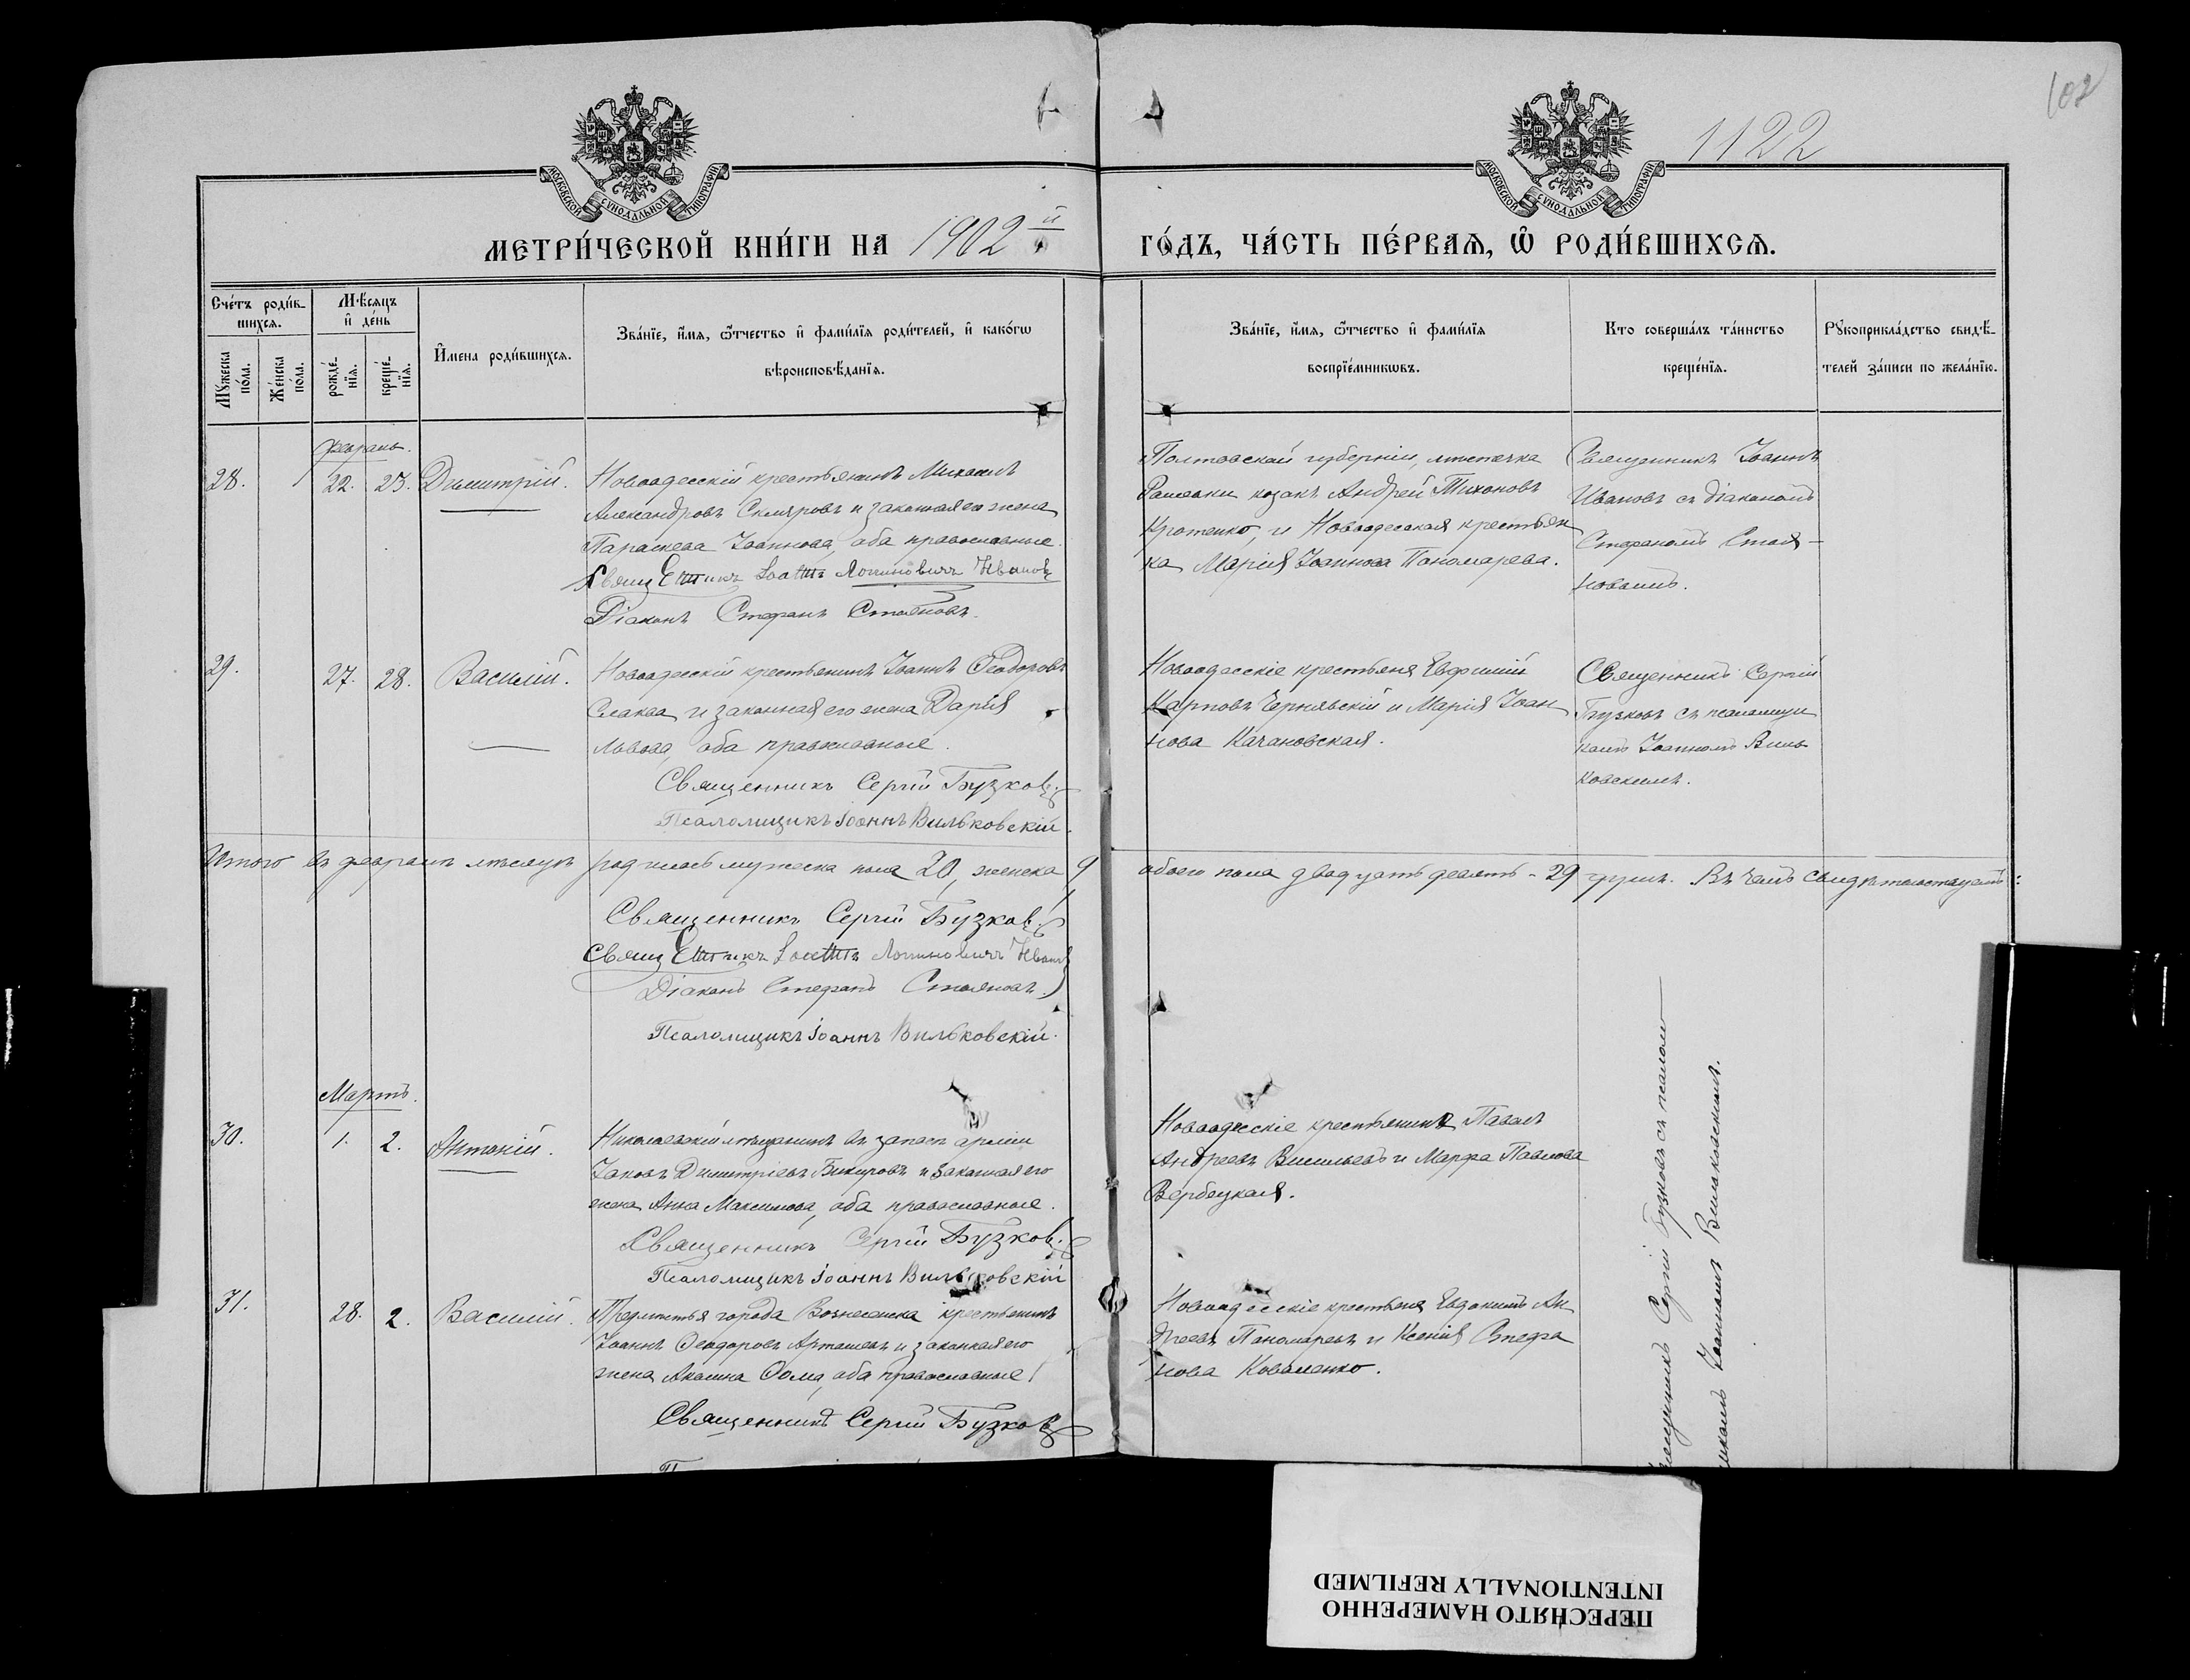 102
1122
МОСКОВСКОЙ СѴНОДАЛЬНОЙ ТИПОГРАФІИ
МОСКОВСКОЙ СѴНОДАЛЬНОЙ ТИПОГРАФІИ
МЕТРИ́ЧЕСКОЙ КНИ́ГИ НА 1902 й ГО́ДЪ, ЧА́СТЬ ПЕ́РВАЯ, Ѡ҆ РОДИ́ВШИХСЯ.
Сче́тъ роди́в-
шихся.
Мꙋ́жеска по́ла.
Же́нска по́ла.
Мѣ́сяцъ и҆ де́нь
рожде́-
нїя.
креще́-
нїя.
И҆мена роди́вшихся.
Зва́нїе, и҆́мя, ѻ҆́тчество и҆ фами́лїя роди́телей, и҆ како́гѡ
вѣроисповѣ́данїя.
Зва́нїе, и҆́мя, ѻ҆́тчество и҆ фами́лїя
воспрїе́мникѡвъ.
Кто соверша́лъ та́инство
креще́нїя.
Рꙋкоприкла́дство свидѣ́-
телей за́писи по жела́нїю.
Февраль.
28. 22. 23. Димитрій.
Новоодесскій крестьянинъ Михаилъ
Александровъ Скляровъ и законная его жена
Параскева Іоаннова, оба православные.
Священникъ Іоаннъ Логиновичъ Ивановъ
Діаконъ Стефанъ Стояновъ.
Полтавской губерніи, мѣстечка
Рашевки козакъ Андрей Тихоновъ
Кротенко, и Новоодесская крестьян
ка Марія Іоаннова Пономарева.
Священникъ Іоаннъ
Ивановъ съ діакономъ
Стефаномъ Стоя-
новымъ.
29. 27. 28. Василій.
Новоодесскій крестьянинъ Іоаннъ Ѳеодоровъ
Слава и законная его жена Дарія
Львова, оба православные.
Священникъ Сергій Бузковъ
Псаломщикъ Іоаннъ Вильковскій.
Новоодесскіе крестьяне Евфимій
Карповъ Чернявскій и Марія Іоан
нова Качановская.
Священникъ Сергій
Бузковъ съ псаломщи
комъ Іоанномъ Виль
ковскимъ.
Итого въ февралѣ мѣсяцѣ родилось мужеска пола 20, женска 9 обоего пола двадцать девять - 29 душъ. Въ чемъ свидѣтельствуемъ:
Священникъ Сергій Бузковъ
Священникъ Іоаннъ Логиновичъ Ивановъ
Діаконъ Стефанъ Стояновъ.
Псаломщикъ Іоаннъ Вильковскій.
Мартъ.
30. 1. 2. Антоній.
Николаевскій мѣщанинъ въ запасѣ арміи
Іаковъ Димитріевъ и законная его
жена Анна Максимова, оба православные.
Священникъ Сергій Бузковъ.
Псаломщикъ Іоаннъ Вильковскій
Новоодесскіе крестьянинъ Павелъ
Андреевъ Васильевъ и Марфа Павлова
Вербецкая.
31. 28. 2. Василій.
Предмѣстья города Вознесенска крестьянинъ
Іоаннъ Ѳеодоровъ и законная его
жена Акилина Ѳома, оба православные
Священникъ Сергій Бузковъ
Новоодесскіе крестьяне Евдокимъ Ан
дреевъ Пономаревъ и Ксенія Стефа
нова Коваленко.
Священникъ Сергій Бузковъ съ псалом
щикомъ Іоанномъ Вильковскимъ.
ПЕРЕСНЯТО НАМЕРЕННО
INTENTIONALLY REFILMED